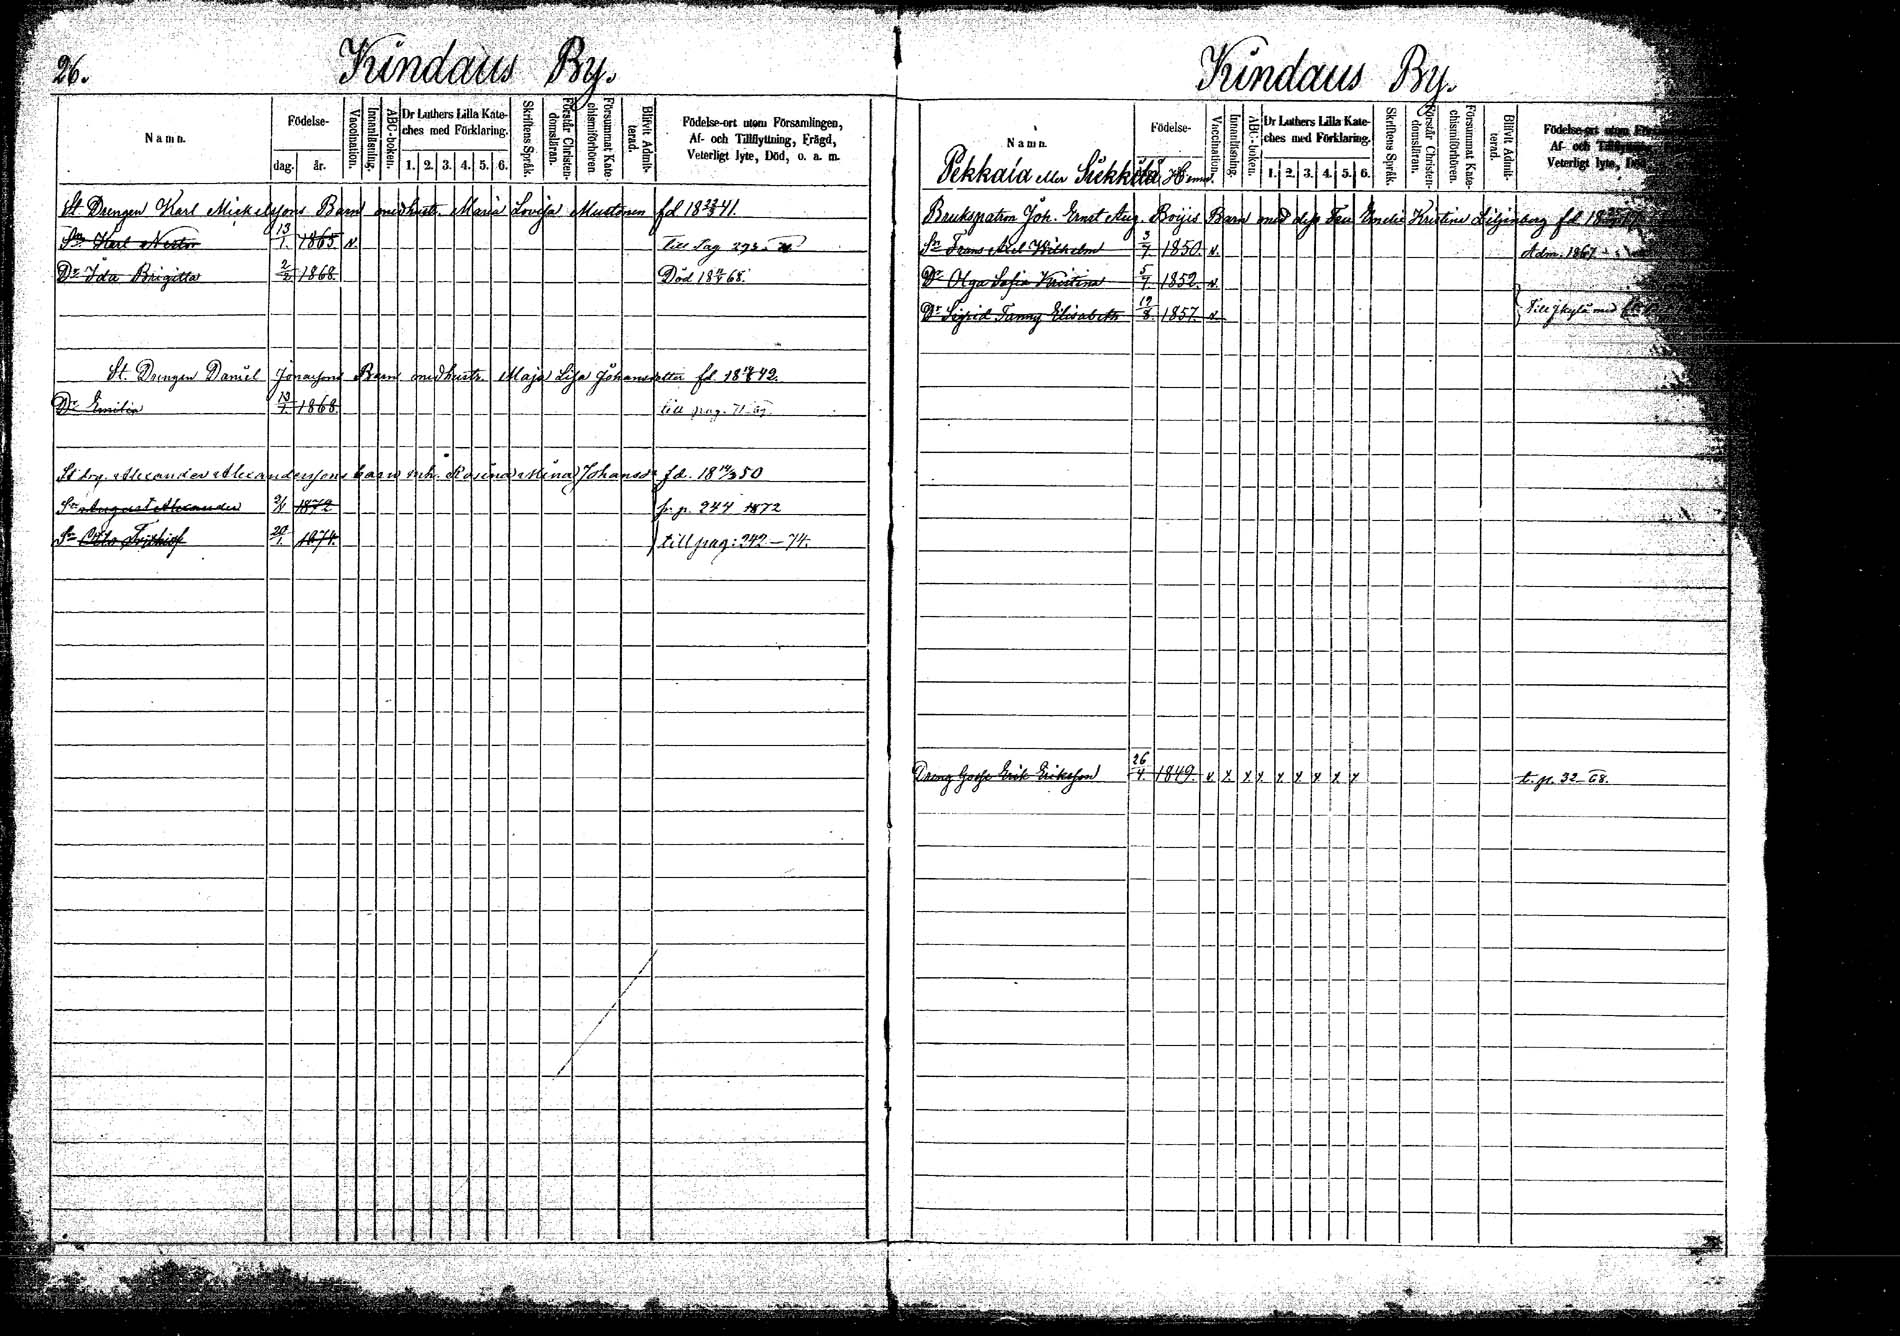 26.
Kündaus By.
Namn.
Födelse-
dag. år.
Vaccination.
Innanläsning.
ABC-boken.
Dr Luthers Lilla Kate-
ches med Förklaring.
1. 2. 3. 4. 5. 6.
Skriftens Språk.
Förstår Christen-
domsläran.
Försummat Kate-
chismiförhören.
Blifvit Admit-
terad.
Födelse-ort utom Församlingen,
Af- och Tillflyttning, Frägd,
Veterligt lyte, Död, o. a. m.
St. Drengen Karl Mickelssons Barn med hustr. Maria Lovisa Mustonen fd 18 41.
Sn Karl Nestor 13/1 1865 v. till Pag 293
Dr Ida Brigitta 2/2 1868. Död 18 68.
St. Drengen Daniel Jonassons Barn med hustr. Maja Lisa Johansdotter fd. 18 42.
Dr Emilia 13/1. 1868. till pag. 71
St drg. Alexander Alexanderssons barn m h. Rosina Mina Johansdr fd. 18 50
Sn August Alexander 1872 fr. p. 244 1872
Sn Otto Frithiof 20/1. 1874. till pag: 242 - 74.
Kündaus By.
Namn.
Pekkala eller Sukkila Hemn.
Födelse-
Vaccination.
Innanläsning.
ABC-boken.
Dr Luthers Lilla Kate-
ches med Förklaring.
1. 2. 3. 4. 5. 6.
Skriftens Språk.
Förstår Christen-
domsläran.
Försummat Kate-
chismiförhören.
Blifvit Admit-
terad.
Födelse-ort utom
Af- och
Veterligt lyte,
Brukspatron Joh. Ernst Aug. Boijis Barn med dess Fru Emelie Kristine Liljenberg fd 18
Sn Frans Axel Wilhelm 3/7. 1850. v. Adm. 1867.
Dr Olga Sofia Kristina 5/7. 1852. v.
Dr Sigrid Fanny Elisabeth 19/8. 1857. v. Till Jkylä med
Dreng Gosse Erik Eriksson 26/4. 1849. v. x x x x x x x x t. p. 32 - 68.